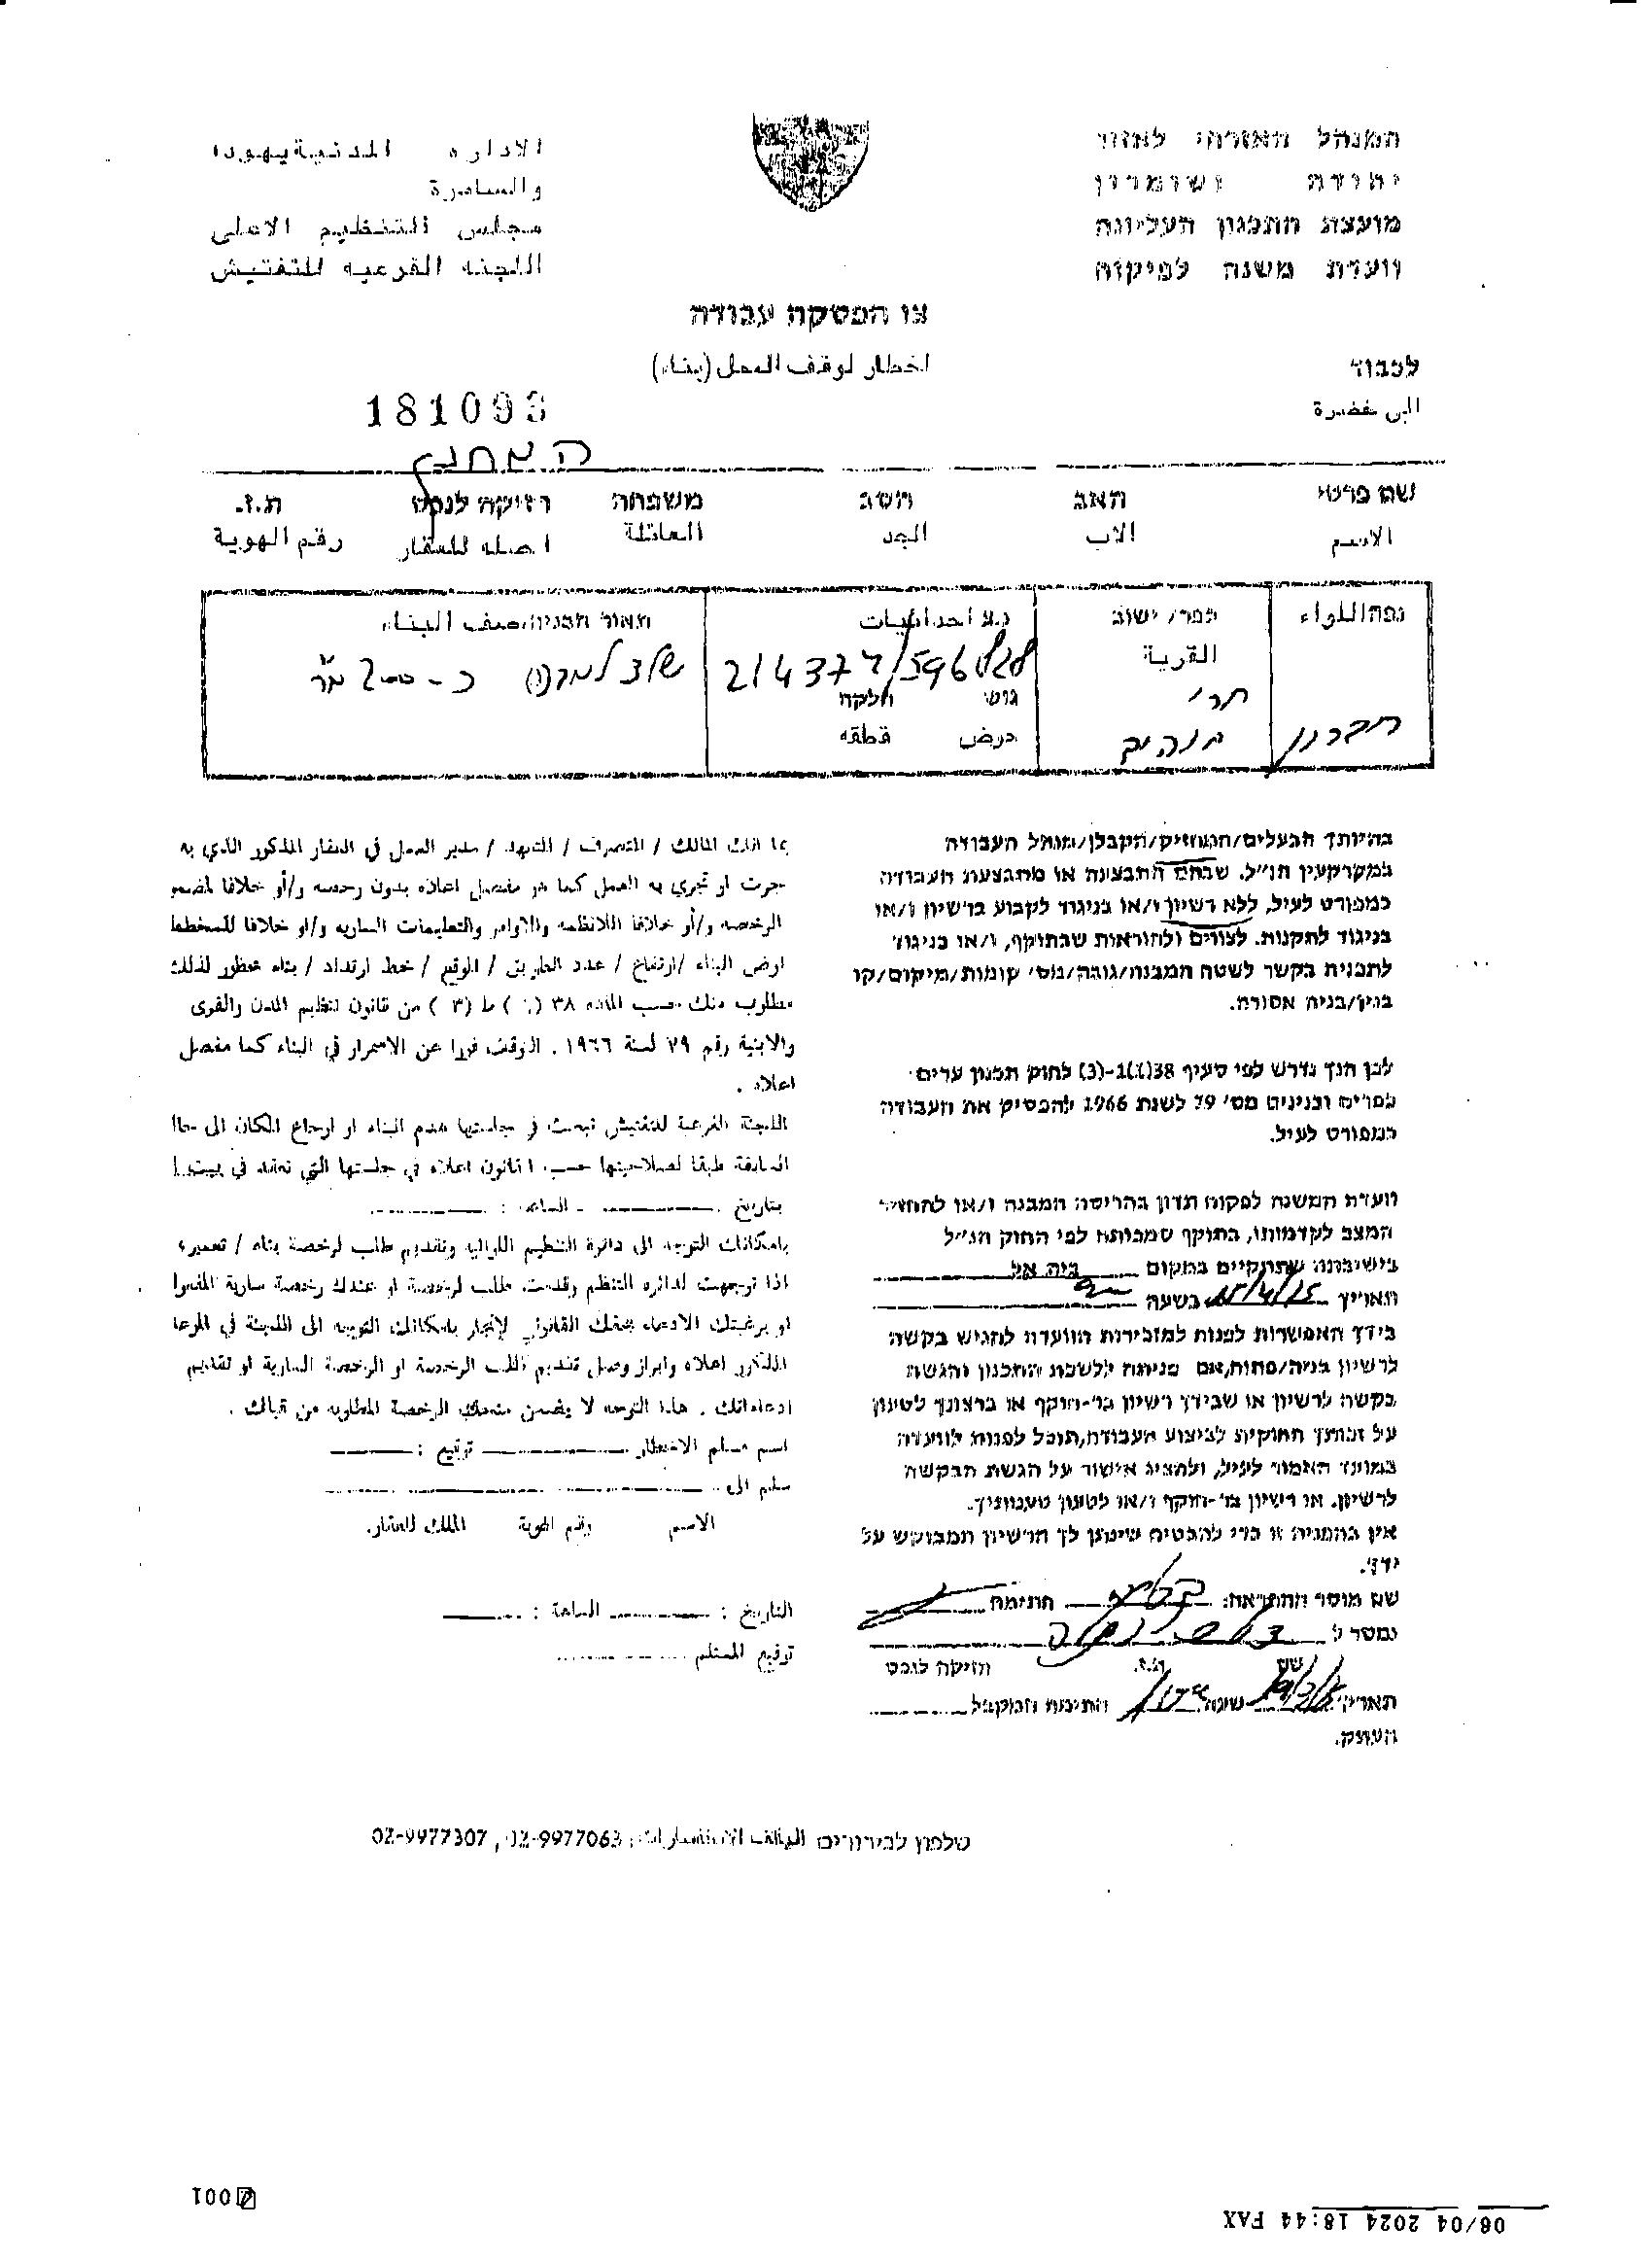 המנהל האזרחי לאזור
יהודה ושומרון
מועצת התכנון העליונה
וועדת משנה לפיקוח
الاداره المدنية يهودا
والسامرة
مجلس التنظيم الاعلى
اللجنه الفرعيه للتفتيش
צו הפסקת עבודה
اخطار لوقف العمل (بناء)
לכבוד
الى حضرة
181093
שם פרטי האב הסב משפחה הזיקה לנכס ת.ז.
الاسم الاب الجد العائلة صله للعقار رقم الهوية
נפה اللواء
חברון
כפר/ישוב
القرية
נ.צ احداثيات
214377/596828
גוש חלקה
حوض قطعه
תאור הבניה/صنف البناء
כ-200 מ"ר
בהיותך הבעלים/המחזיק/הקבלן/מנהל העבודה
במקרקעין הנ"ל, שבהם התבצעה או מתבצעת העבודה
כמפורט לעיל, ללא רשיון ו/או בניגוד לקבוע ברשיון ו/או
בניגוד לתקנות, לצווים ולהוראות שבתוקף, ו/או בניגוד
לתכנית בקשר לשטח המבנה/גובה/מס' קומות/מיקום/קו
בנין/בניה אסורה.
לכן הנך נדרש לפי סעיף 38(1)1-(3) לחוק תכנון ערים
כפרים ובנינים מס' 79 לשנת 1966 להפסיק את העבודה
כמפורט לעיל.
וועדת המשנה לפקוח תדון בהריסת המבנה ו/או להחזיר
המצב לקדמותו, בתוקף סמכותה לפי החוק הנ"ל
בישיבתה שתתקיים במקום בית אל
תאריך 15/4/15 בשעה
בידך האפשרות לפנות למזכירות הוועדה להגיש בקשה
לרשיון בניה/פתוח, אם פנית ללשכת התכנון והגשת
בקשה לרשיון או שבידך רשיון בר-תוקף או ברצונך לטעון
על זכותך החוקית לביצוע העבודה, תוכל לפנות לוועדה
במועד האמור לעיל, ולהציג אישור על הגשת הבקשה
לרשיון, או רשיון בר-תוקף ו/או לטעון טענותיך.
אין בהפניה זו כדי להבטיח שינתן לך הרשיון המבוקש על
ידך.
שם מוסר ההתראה: חתימה
נמסר ל
שם ת.ז. הזיקה לנכס
תאריך שעה חתימת המקבל
העתק.
بما انك المالك / المتصرف / المتعهد / مدير العمل في العقار المذكور الذي به
جرت او تجري به العمل كما هو مفصل اعلاه بدون رخصه و/أو خلافا لمضمو
الرخصه و/أو خلافا للانظمه والاوامر والتعليمات الساريه و/او خلافا للمخطط
ارض البناء / ارتفاع / عدد الطوابق / الموقع / خط ارتداد / بناء محظور لذلك
مطلوب منك حسب الماده ٣٨ (١) ط (٣) من قانون تنظيم المدن والقرى
والابنية رقم ٧٩ لسنة ١٩٦٦ . الوقف فورا عن الاستمرار في البناء كما مفصل
اعلاه .
اللجنة الفرعية للتفتيش تبحث في جلستها هدم البناء او ارجاع المكان الى حالا
السابقة طبقا لصلاحيتها حسب القانون اعلاه في جلستها التي تعقد في بيت ا
بتاريخ الساعة :
بامكانك التوجه الى دائرة التنظيم اللوائيه وتقديم طلب لرخصة بناء / تعمير
اذا توجهت لدائره التنظم وقدمت طلب لرخصة او عندك رخصة سارية المفعوا
او برغبتك الادعاء بحقك القانوني لإنجاز بامكانك التوجه الى اللجنة في الموعا
المذكور اعلاه وابراز وصل تقديم طلب الرخصة او الرخصة السارية او تقديم
ادعاءاتك . هذا التوجه لا يضمن منحك الرخصة المطلوبه من قبالك .
اسم مسلم الاخطار توقيع :
سلم الى
الاسم رقم الهوية الملك للعقار.
التاريخ : الساعة :
توقيع المستلم
טלפון לבירורים الهاتف للاستفسارات: 02-9977063, 02-9977307
001
08/04 2024 18:44 FAX